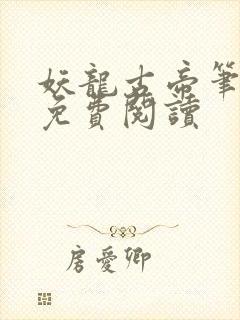 妖龍古帝筆
免費閱讀
房愛卿